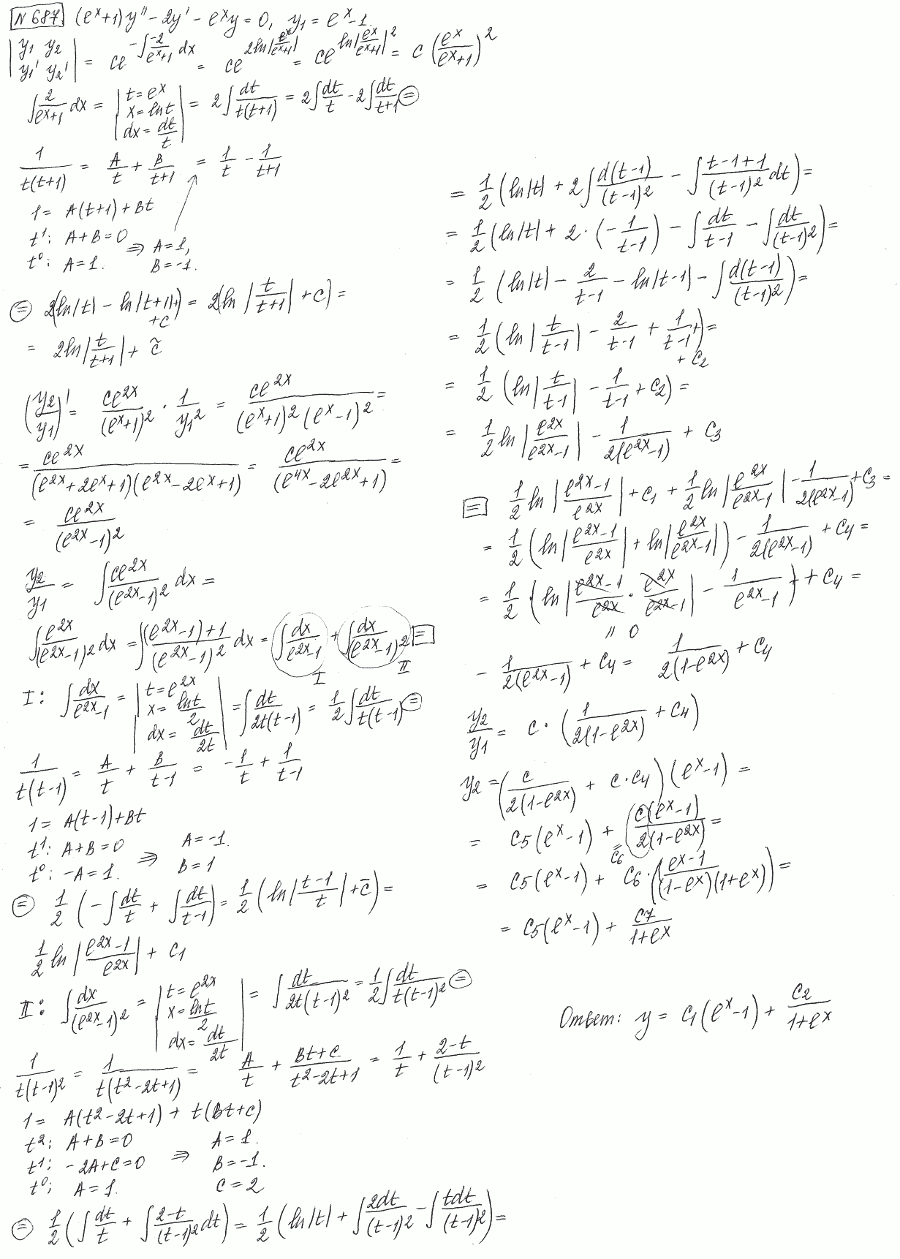 N 687 (eˣ+1)y'' - 2y' - eˣy = 0, y₁ = eˣ-1.
|y₁ y₂; y₁' y₂'| = ce^(-∫ -2/(eˣ+1) dx) = ce^(2ln|eˣ/(eˣ+1)|) = ce^(ln|eˣ/(eˣ+1)|²) = c (eˣ/(eˣ+1))²
∫ 2/(eˣ+1) dx = |t=eˣ; x=lnt; dx=dt/t| = 2∫ dt/(t(t+1)) = 2∫ dt/t - 2∫ dt/(t+1) (=)
1/(t(t+1)) = A/t + B/(t+1) = 1/t - 1/(t+1)
1 = A(t+1) + Bt
t¹: A+B=0
t⁰: A=1. ⇒ A=1, B=-1.
(=) 2(ln|t| - ln|t+1| + c) = 2(ln|t/(t+1)| + c) =
= 2ln|t/(t+1)| + c̃
(y₂/y₁)' = ce²ˣ/(eˣ+1)² · 1/y₁² = ce²ˣ/((eˣ+1)²(eˣ-1)²) =
= ce²ˣ/((e²ˣ+2eˣ+1)(e²ˣ-2eˣ+1)) = ce²ˣ/(e⁴ˣ-2e²ˣ+1) =
= ce²ˣ/(e²ˣ-1)²
y₂/y₁ = ∫ ce²ˣ/(e²ˣ-1)² dx =
∫ e²ˣ/(e²ˣ-1)² dx = ∫ ((e²ˣ-1)+1)/(e²ˣ-1)² dx = ∫ dx/(e²ˣ-1) + ∫ dx/(e²ˣ-1)² [=]
I II
I: ∫ dx/(e²ˣ-1) = |t=e²ˣ; x=lnt/2; dx=dt/2t| = ∫ dt/(2t(t-1)) = 1/2 ∫ dt/(t(t-1)) (=)
1/(t(t-1)) = A/t + B/(t-1) = -1/t + 1/(t-1)
1 = A(t-1)+Bt
t¹: A+B=0
t⁰: -A=1. ⇒ A=-1. B=1
(=) 1/2 (-∫ dt/t + ∫ dt/(t-1)) = 1/2 (ln|(t-1)/t| + c̄) =
1/2 ln|(e²ˣ-1)/e²ˣ| + c₁
II: ∫ dx/(e²ˣ-1)² = |t=e²ˣ; x=lnt/2; dx=dt/2t| = ∫ dt/(2t(t-1)²) = 1/2 ∫ dt/(t(t-1)²) (=)
1/(t(t-1)²) = 1/(t(t²-2t+1)) = A/t + (Bt+c)/(t²-2t+1) = 1/t + (2-t)/(t-1)²
1 = A(t²-2t+1) + t(Bt+c)
t²: A+B=0 A=1.
t¹: -2A+c=0 ⇒ B=-1.
t⁰: A=1. c=2
(=) 1/2 (∫ dt/t + ∫ (2-t)/(t-1)² dt) = 1/2 (ln|t| + ∫ 2dt/(t-1)² - ∫ tdt/(t-1)²) =
= 1/2 (ln|t| + 2∫ d(t-1)/(t-1)² - ∫ (t-1+1)/(t-1)² dt) =
= 1/2 (ln|t| + 2·(-1/(t-1)) - ∫ dt/(t-1) - ∫ dt/(t-1)²) =
= 1/2 (ln|t| - 2/(t-1) - ln|t-1| - ∫ d(t-1)/(t-1)²) =
= 1/2 (ln|t/(t-1)| - 2/(t-1) + 1/(t-1) + c₂) =
= 1/2 (ln|t/(t-1)| - 1/(t-1) + c₂) =
= 1/2 ln|e²ˣ/(e²ˣ-1)| - 1/(2(e²ˣ-1)) + c₃
[=] 1/2 ln|(e²ˣ-1)/e²ˣ| + c₁ + 1/2 ln|e²ˣ/(e²ˣ-1)| - 1/(2(e²ˣ-1)) + c₃ =
= 1/2 (ln|(e²ˣ-1)/e²ˣ| + ln|e²ˣ/(e²ˣ-1)|) - 1/(2(e²ˣ-1)) + c₄ =
= 1/2 · (ln|(e²ˣ-1)/e²ˣ · e²ˣ/(e²ˣ-1)| - 1/(e²ˣ-1)) + c₄ =
" 0
- 1/(2(e²ˣ-1)) + c₄ = 1/(2(1-e²ˣ)) + c₄
y₂/y₁ = c·(1/(2(1-e²ˣ)) + c₄)
y₂ = (c/(2(1-e²ˣ)) + c·c₄)(eˣ-1) =
= c₅(eˣ-1) + c(eˣ-1)/(2(1-e²ˣ)) =
= c₆
= c₅(eˣ-1) + c₆·((eˣ-1)/((1-eˣ)(1+eˣ))) =
= c₅(eˣ-1) + c₇/(1+eˣ)
Ответ: y = c₁(eˣ-1) + c₂/(1+eˣ)